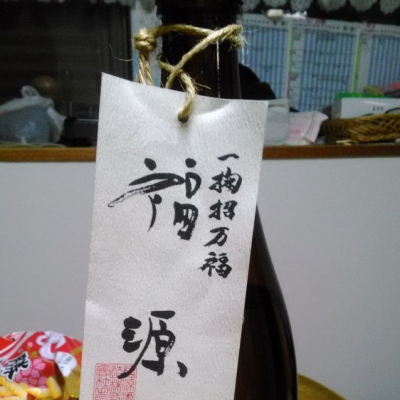 一掬招万福
福源